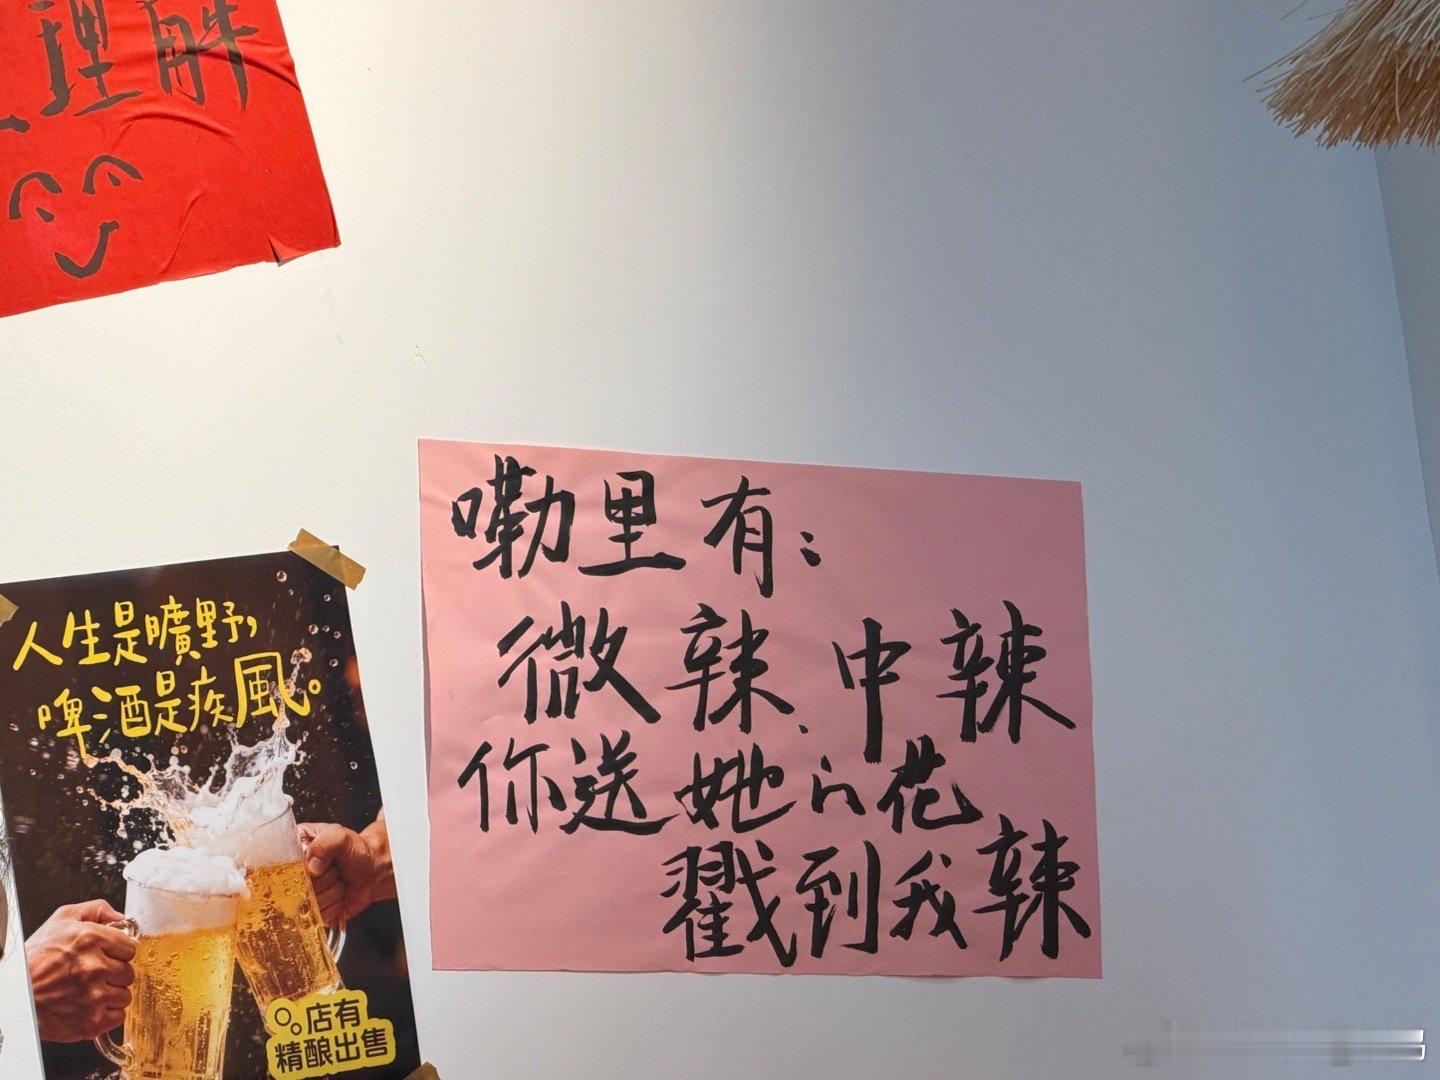 理解
嘞里有:
微辣、中辣
你送她的花
戳到我辣
人生是曠野,
啤酒是疾風。
店有
精酿出售